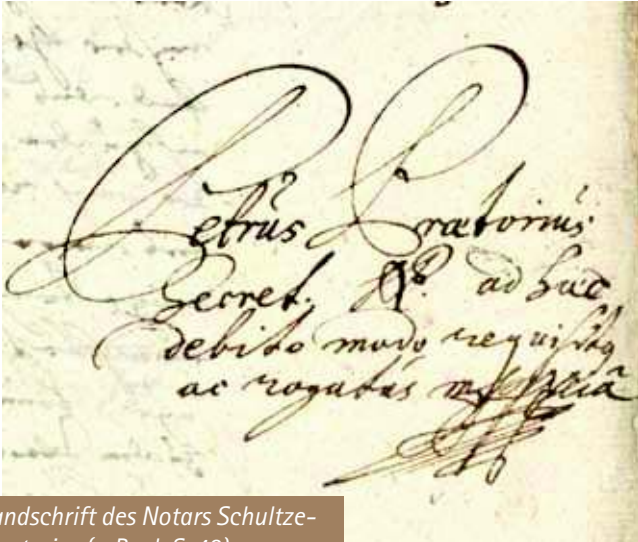 Petrus Prætorius
Secret. ad hæc
debito modo requisitq
ac rogatus
andschrift des Notars Schultze-